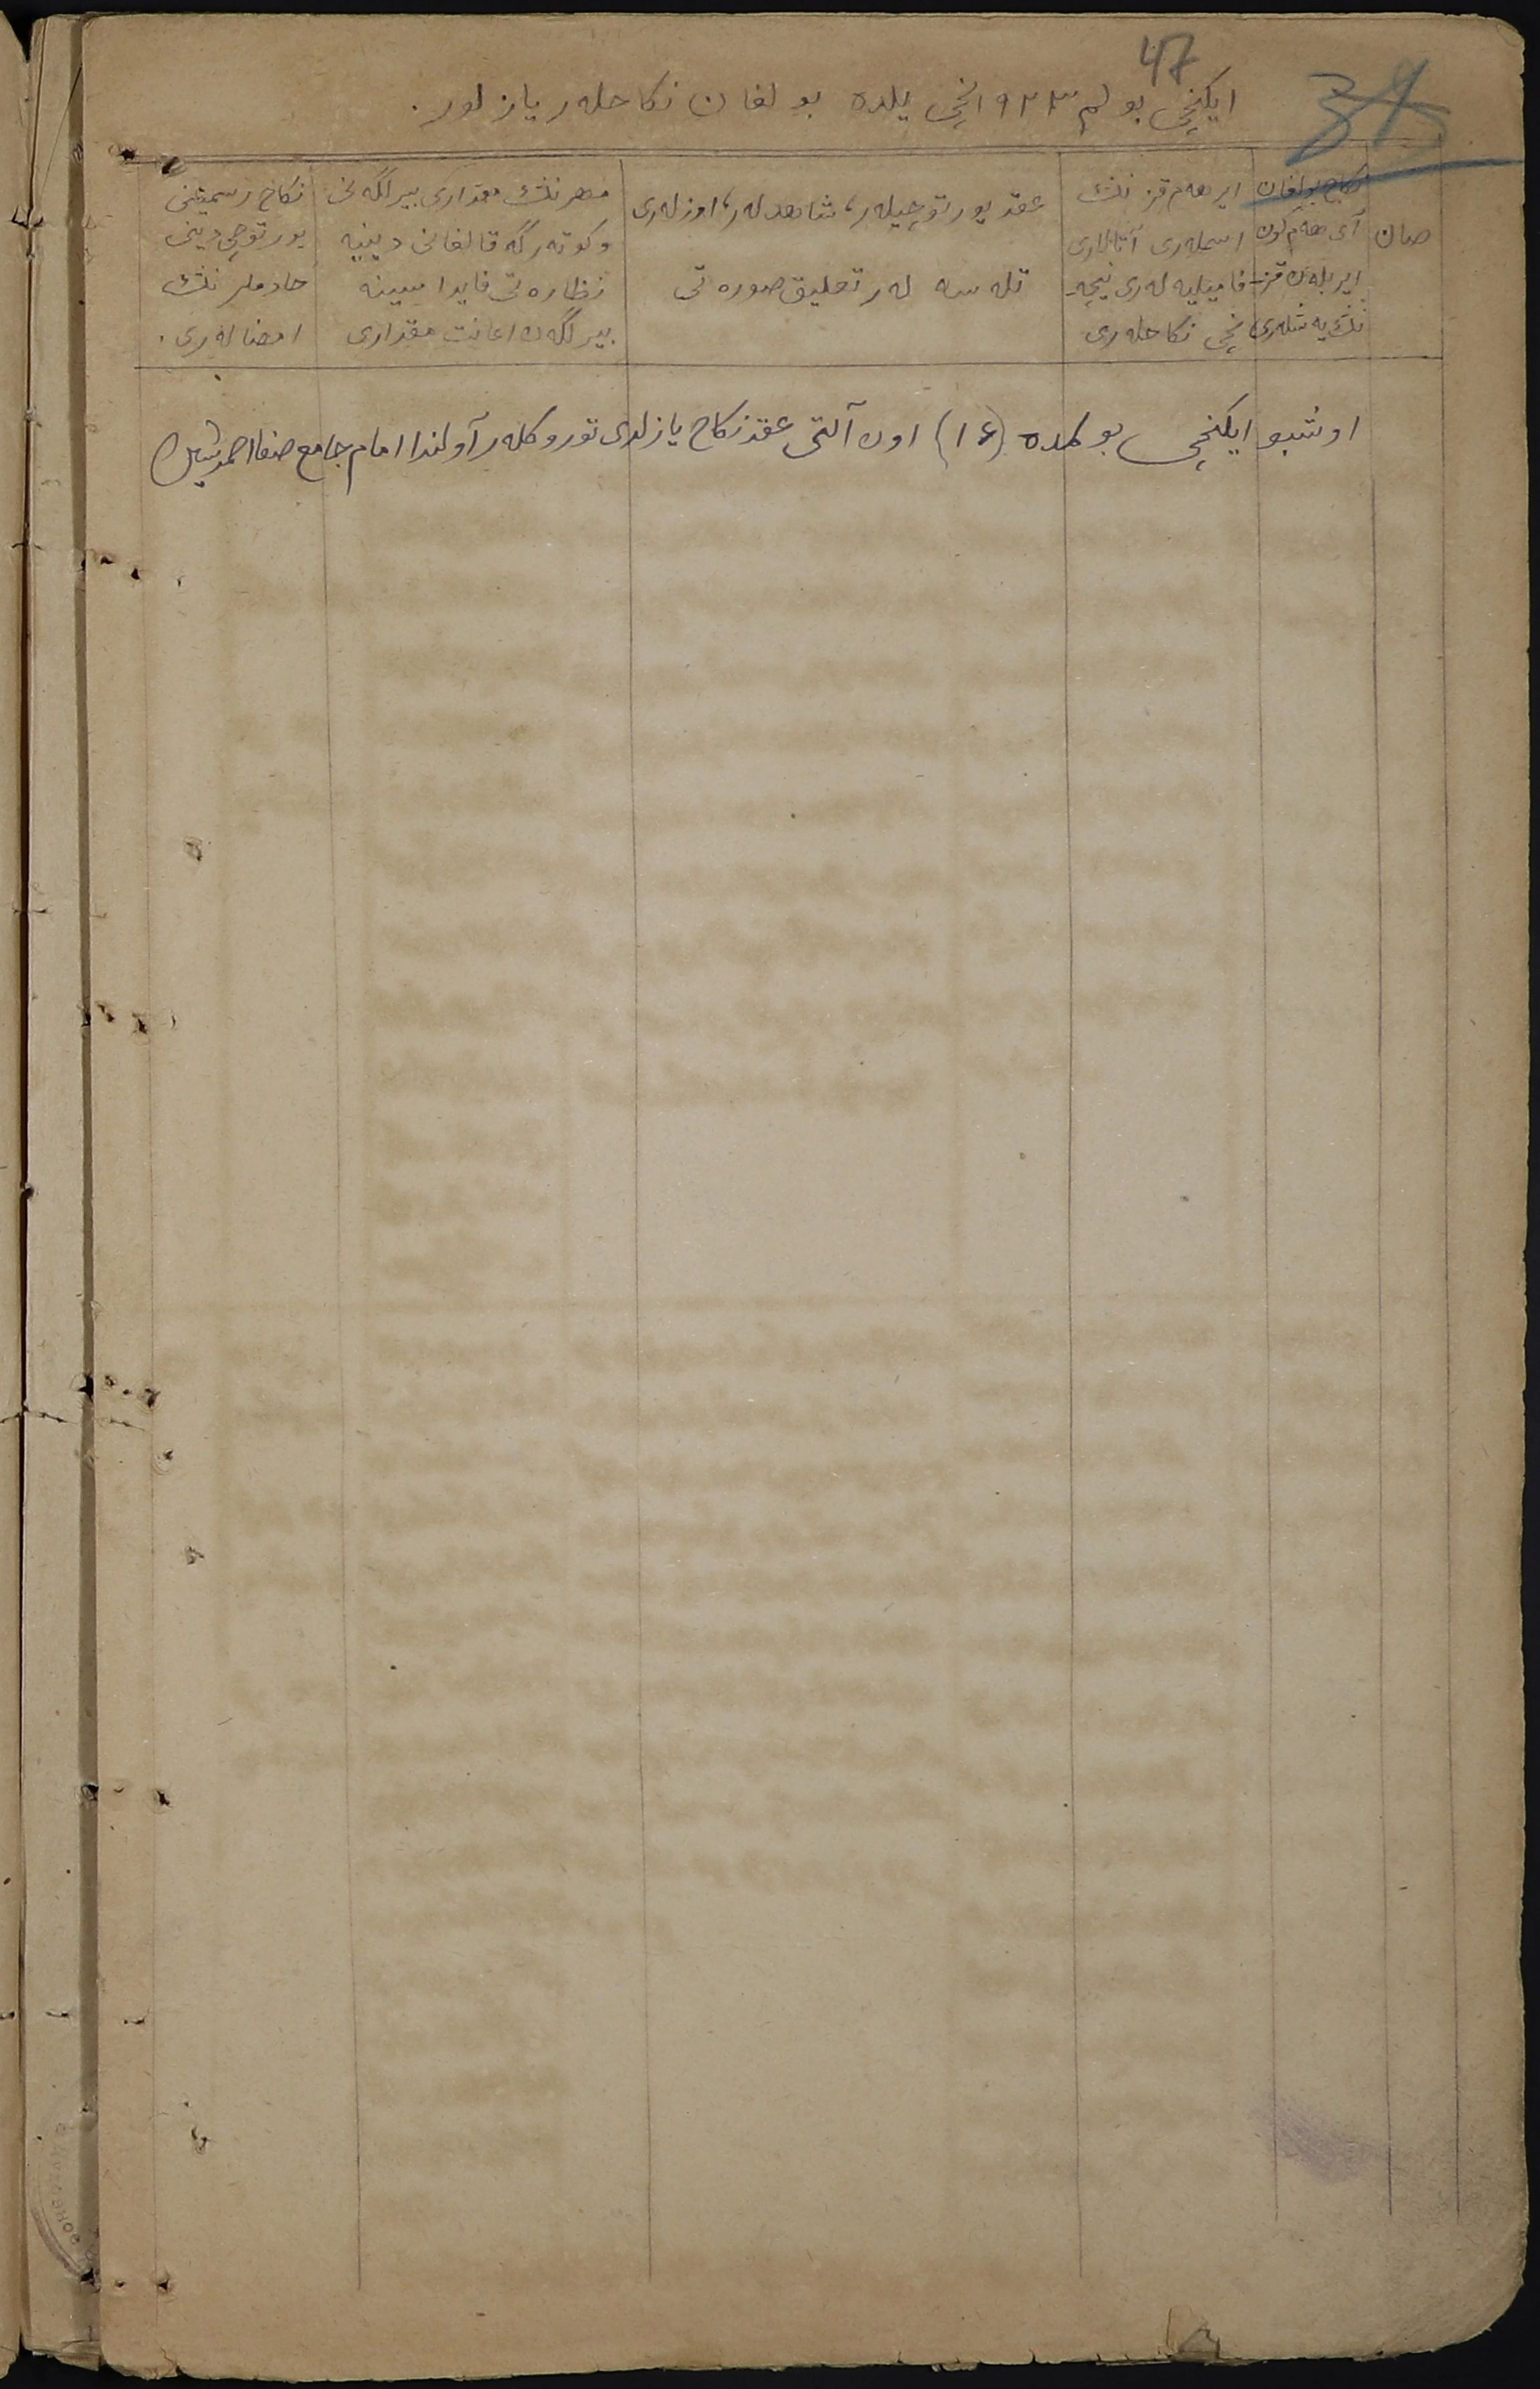 47
38
ایکنچی بولم ۱۹۲۳ نچی یلده بولغان نکاحلەر یازلور.
صان
نکاح بولغان
آی هەم کون
ایر بلەن قز
ننڭ یەشلەری
ایر هەم قز ننڭ
اسملەری آتالاری
فامیلیە لەری نیچە
نچی نکاحلەری
عقد یورتوچیلەر، شاهدلەر، اوزلەری
تلەسە لەر تعلیق صورەتی
مهر ننڭ مقداری بیرلگەنی
وکوتەرگە قالغانی دینیە
نظارەتی فایداسینە
بیرلگەن اعانت مقداری
نکاح رسمیتنی
یورتوچی دینی
خادملر ننڭ
امضالەری.
اوشبو ایکنچی بولمده (۱۶) اون آلتی عقد نکاح یازلدی توروکلەر آولندا امام جامع